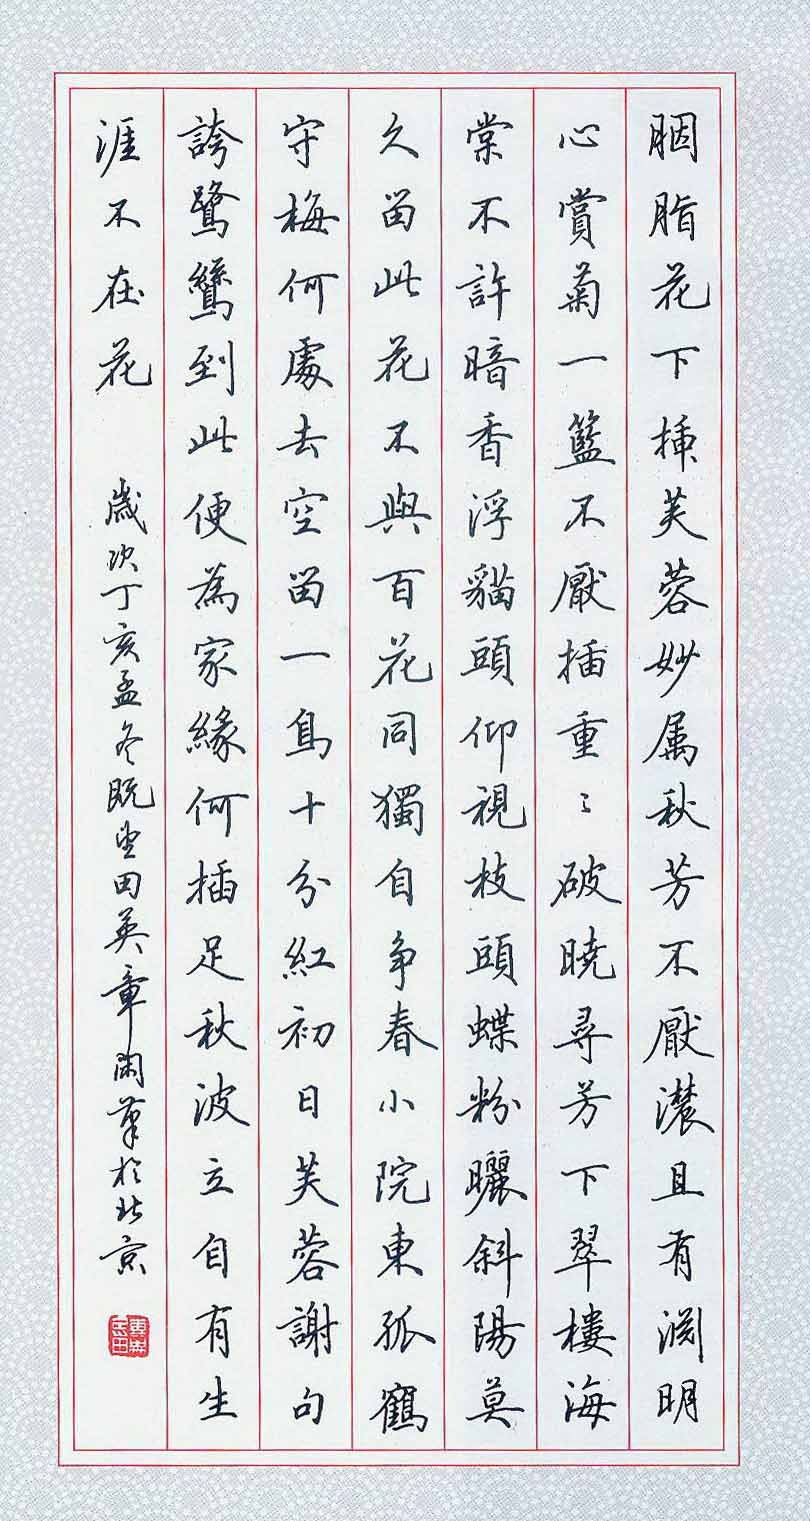 胭脂花下插芙蓉妙属秋芳不厭濃且有淵明
心賞菊一籃不厭插重〻破曉尋芳下翠樓海
棠不許暗香浮貓頭仰視枝頭蝶粉曬斜陽莫
久留此花不與百花同獨自爭春小院東孤鶴
守梅何處去空留一鳥十分紅初日芙蓉謝句
誇鷺鷥到此便為家緣何插足秋波立自有生
涯不在花 歲次丁亥孟冬既望田英章閑筆於北京